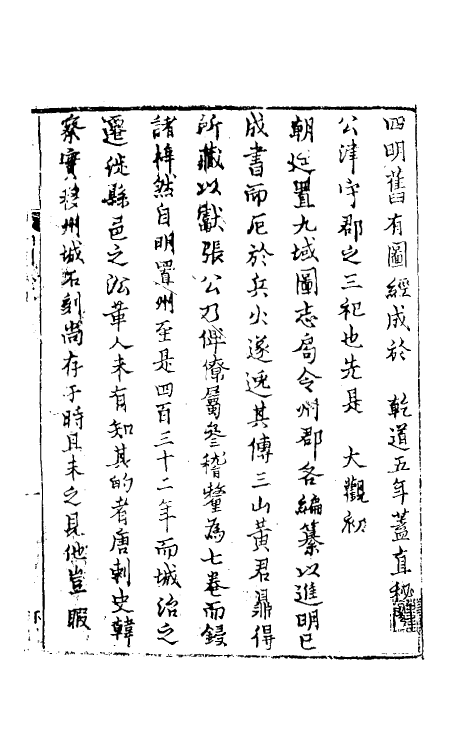 四明舊有圖經成於 乾道五年蓋直秘閣
公津守郡之三祀也先是 大觀初
朝廷置九域圖志局令州郡各編纂以進明已
成書而厄於兵火遂逸其傳三山黃君鼎得
所藏以獻張公乃俾僚屬參稽釐為七卷而鋟
諸梓然自明置州至是四百三十二年而城治之
遷徙縣邑之沿革人未有知其的者唐刺史韓
察實移州城石刻尚存于時且未之見他豈暇